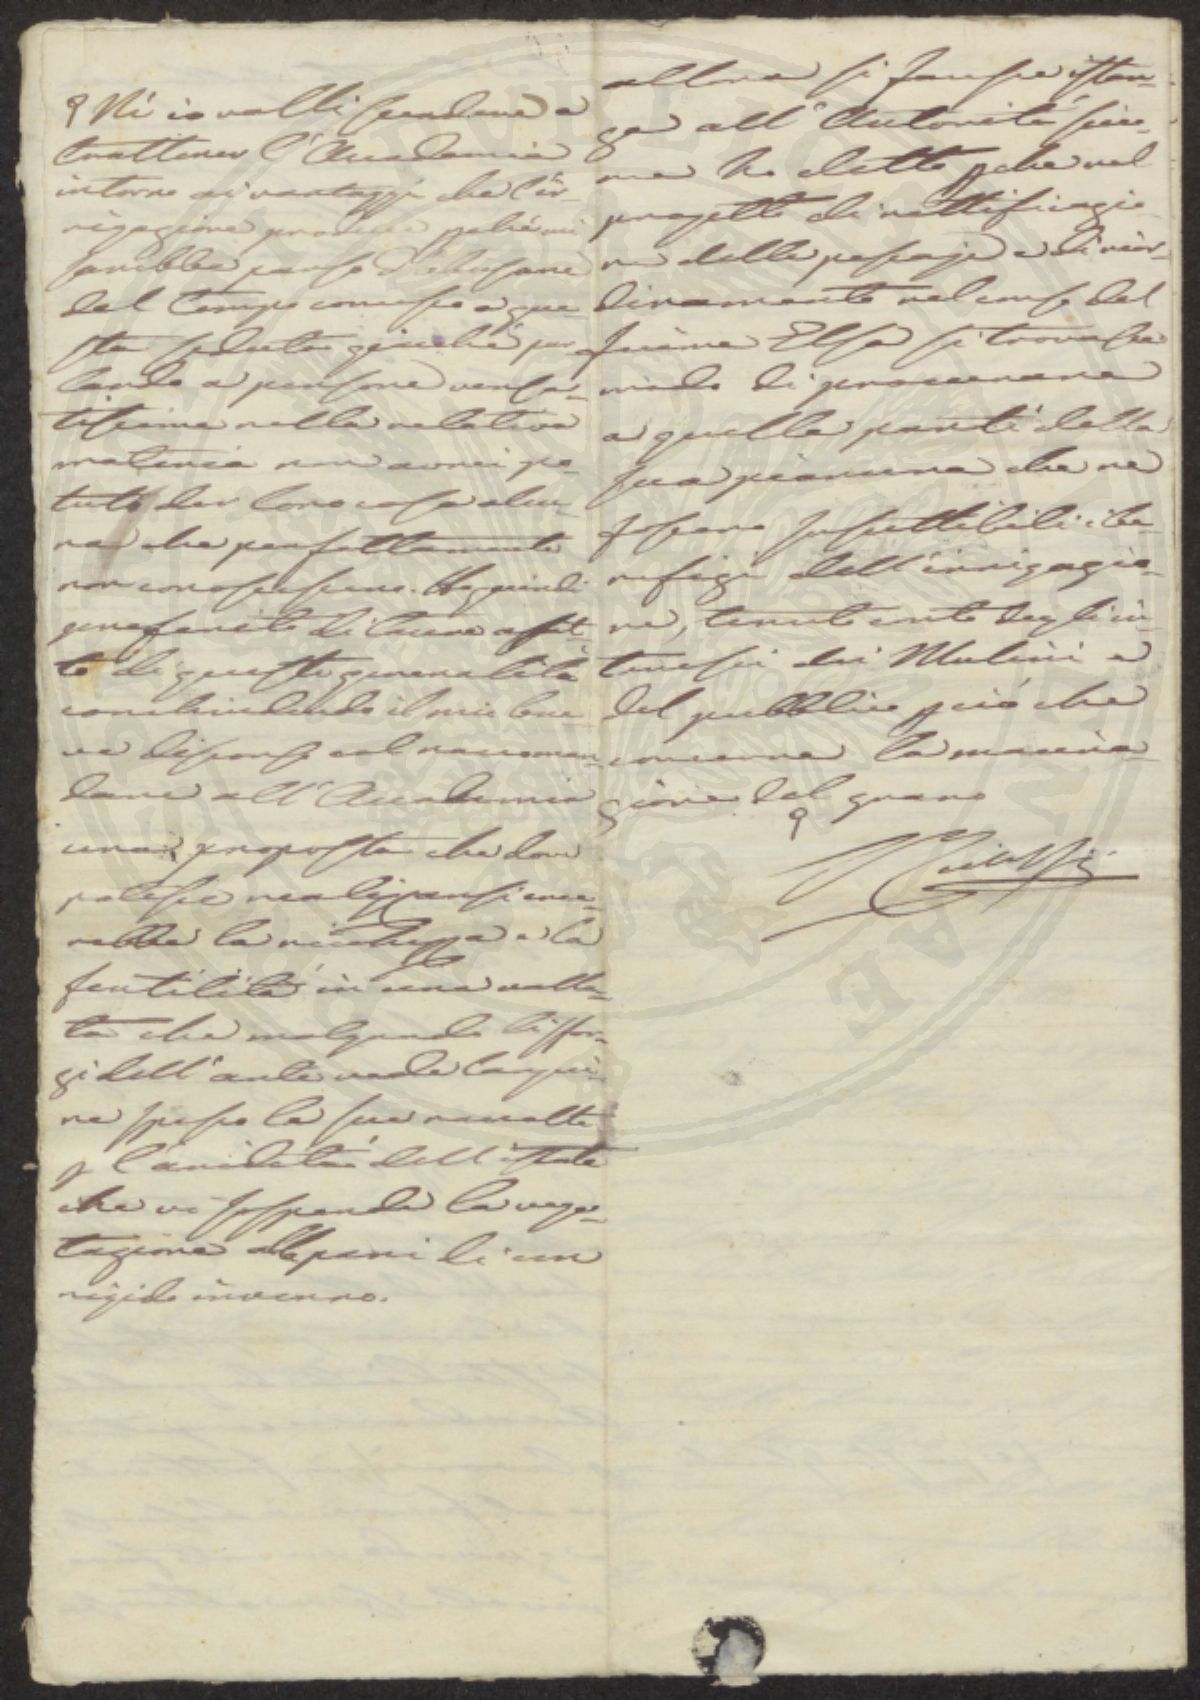 Nè io volli scendere a
trattener l'Accademia
intorno ai vantaggi che l'ir-
rigazione produce perchè mi
sarebbe parso d'abusare
del tempo concesso a que-
sta seduta giacchè par-
lando a persone versa-
tissime nella relativa
materia non avrei po-
tuto dir loro cosa alcu-
na che perfettamente
non conoscessero. Ho quindi
preferito di tacere affat-
to di queste generalità
conchiudendo il mio bre-
ve discorso col raccoman-
dare all'Accademia
una proposta che dove
potesse realizzarsi accre-
rebbe la ricchezza e la
fertilità in una valla-
ta che malgrado li sfor-
zi dell'arte vede langui-
re spesso le sue raccolte
p l'aridità dell'estate
che vi sospende la vege-
tazione al pari di un
rigido inverno.
allora si facesse istan-
za all'Autorità sicco-
me ho detto pche nel
progetto di rettificazio-
ne delle pescaje e di rior-
dinamento nel corso del
fiume Elsa si trovasse
modo di procurare
a quelle parti della
sua pianura che ne
fossero suscettibili i be-
nefizi dell'irrigazio-
ne, tenuto conto degli in-
teressi dei Mulini e
del pubblico p ciò che
concerne la macina-
zione del grano